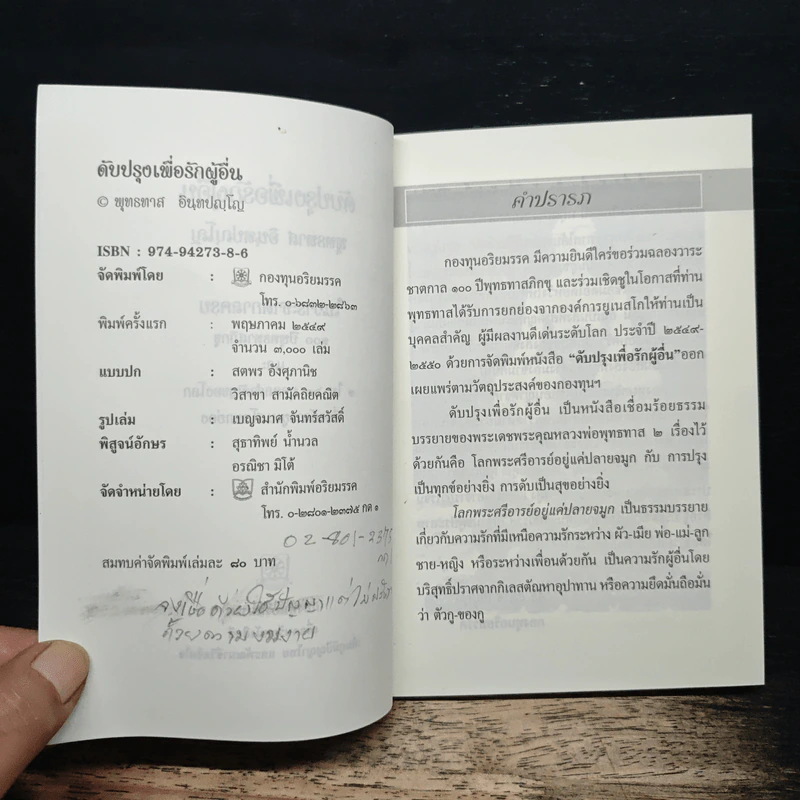 ดับปรุงเพื่อรักผู้อื่น
© พุทธทาส อินฺทปญฺโญ
ISBN : 974-94273-8-6
จัดพิมพ์โดย : กองทุนอริยมรรค
โทร. ๐-๖๘๓๒-๒๘๖๓
พิมพ์ครั้งแรก : พฤษภาคม ๒๕๔๙
จำนวน ๓,๐๐๐ เล่ม
แบบปก : สตพร อังศุภานิช
วิสาขา สามัคถิยคณิต
รูปเล่ม : เบญจมาศ จันทร์สวัสดิ์
พิสูจน์อักษร : สุธาทิพย์ น้ำนวล
อรณิชา มิโต้
จัดจำหน่ายโดย : สำนักพิมพ์อริยมรรค
โทร. ๐-๒๘๐๑-๒๓๗๕ กด ๑
02-801-2375
กด 1
สมทบค่าจัดพิมพ์เล่มละ ๘๐ บาท
จงเชื่อด้วยใช้ปัญญาแต่ไม่
ด้วยความงมงาย
คำปรารภ
กองทุนอริยมรรค มีความยินดีใคร่ขอร่วมฉลองวาระ
ชาตกาล ๑๐๐ ปีพุทธทาสภิกขุ และร่วมเชิดชูในโอกาสที่ท่าน
พุทธทาสได้รับการยกย่องจากองค์การยูเนสโกให้ท่านเป็น
บุคคลสำคัญ ผู้มีผลงานดีเด่นระดับโลก ประจำปี ๒๕๔๙-
๒๕๕๐ ด้วยการจัดพิมพ์หนังสือ “ดับปรุงเพื่อรักผู้อื่น”ออก
เผยแพร่ตามวัตถุประสงค์ของกองทุนฯ
ดับปรุงเพื่อรักผู้อื่น เป็นหนังสือเชื่อมร้อยธรรม
บรรยายของพระเดชพระคุณหลวงพ่อพุทธทาส ๒ เรื่องไว้
ด้วยกันคือ โลกพระศรีอารย์อยู่แค่ปลายจมูก กับ การปรุง
เป็นทุกข์อย่างยิ่ง การดับเป็นสุขอย่างยิ่ง
โลกพระศรีอารย์อยู่แค่ปลายจมูก เป็นธรรมบรรยาย
เกี่ยวกับความรักที่มีเหนือความรักระหว่าง ผัว-เมีย พ่อ-แม่-ลูก
ชาย-หญิง หรือระหว่างเพื่อนด้วยกัน เป็นความรักผู้อื่นโดย
บริสุทธิ์ปราศจากกิเลสตัณหาอุปาทาน หรือความยึดมั่นถือมั่น
ว่า ตัวกู-ของกู